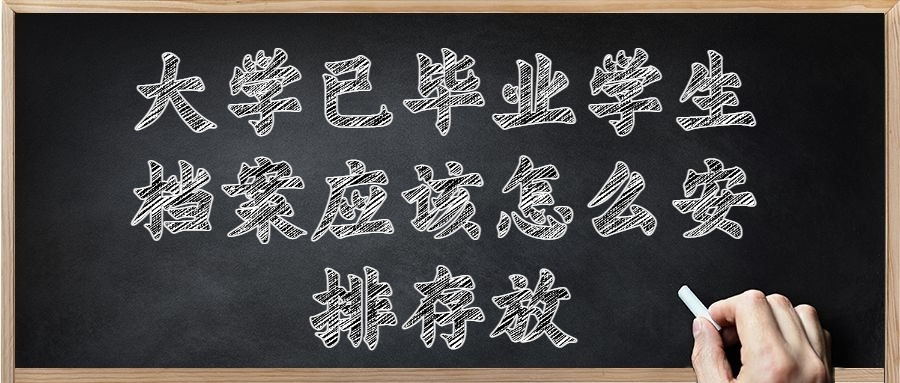 大学已毕业学生
档案应该怎么安
排存放